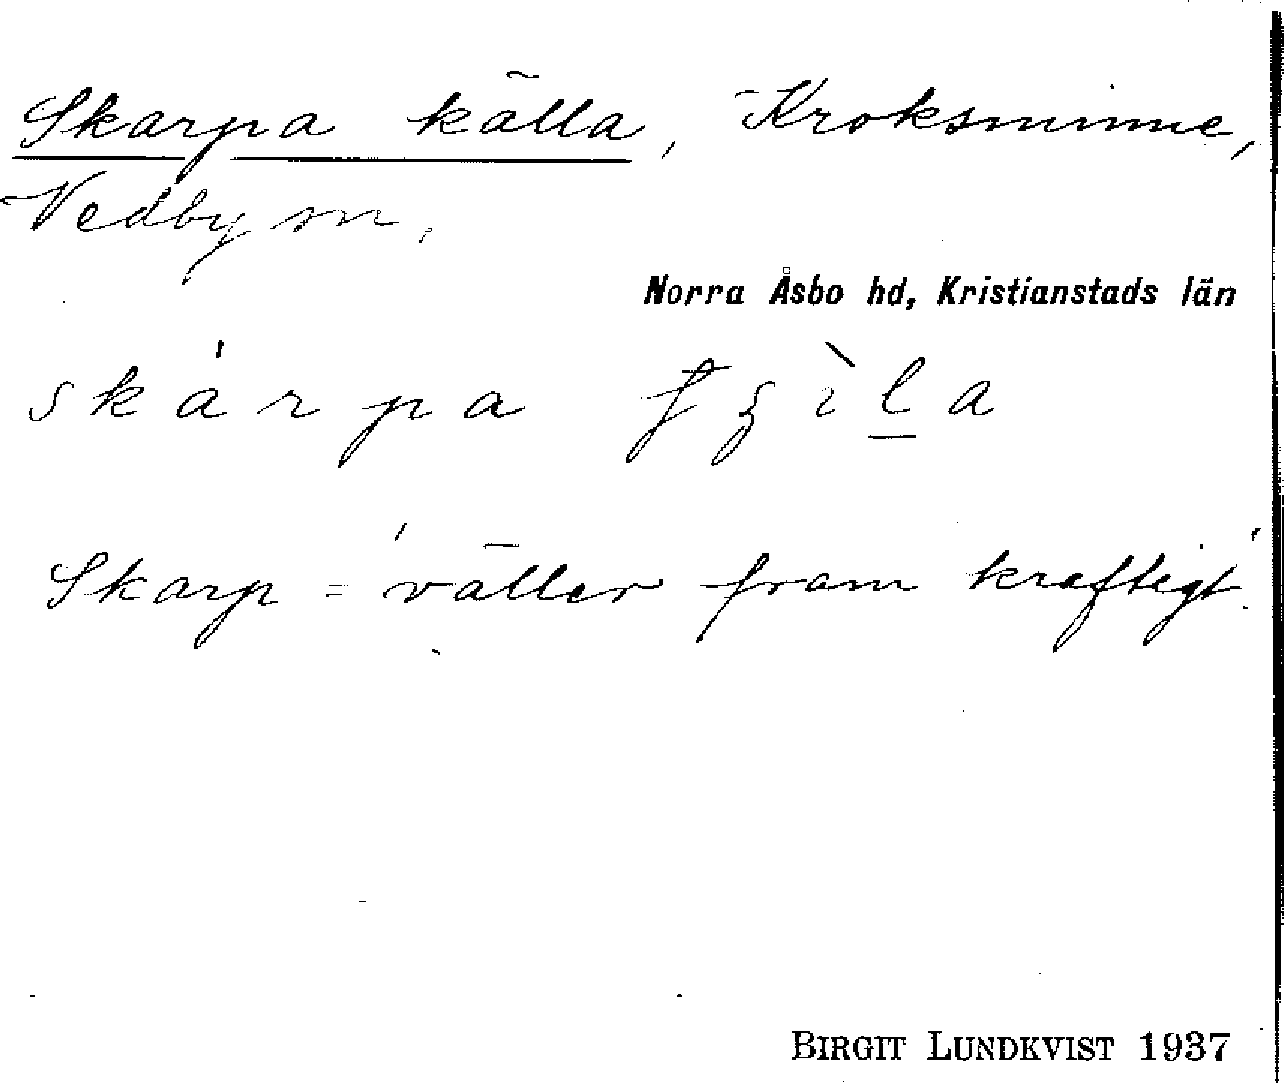 Skarpa källa, Kroksminne,
Vedby sn.
Norra Åsbo hd, Kristianstads län
skárpa
Skarp = 'väller fram kraftigt'.
BIRGIT LUNDKVIST 1937